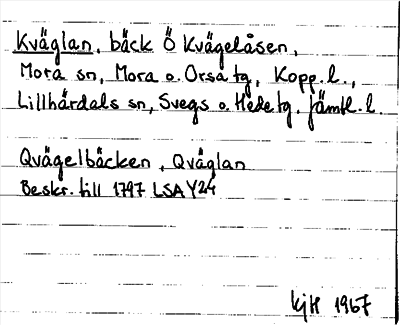 Kväglan, bäck Ö Kvägelåsen,
Mora sn, Mora o. Orsa tg, Kopp. l.,
Lillhärdals sn, Svegs o. Hede tg, Jämtl. l.
Qvägelbäcken, Qväglan
Beskr. till 1797 LSA Y24
KjH 1967